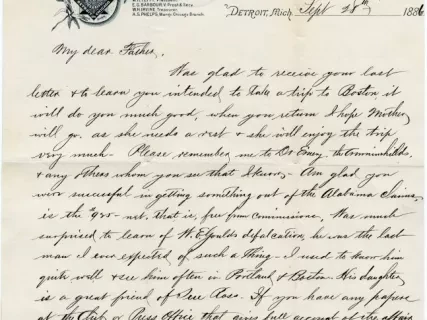 E.G. BARBOUR, V. Prest & Secy.
W.H. IRVINE, Treasurer.
A.S. PHELPS, Manag. Chicago Branch.
DETROIT, Mich. Sept 28th 1886
My dear Father,
Was glad to receive your last
letter & to learn you intended to take a trip to Boston. it
will do you much good, when you return I hope Mother
will go. as she needs a rest & she will enjoy the trip
very much. Please remember me to Dr Emery, the
& any others whom you see that I know. Am glad you
were successful in getting something out of the Alabama Claims.
is the net. that is, free from Commissions. Was much
surprised to learn of W. E. Goulds defalcation, he was the last
man I ever expected of such a thing. I used to know him
quite well & see him often in Portland & Boston. His daughter
is a great friend of Rose. If you have any papers
at the Club or Press Office that gives full account of the affair